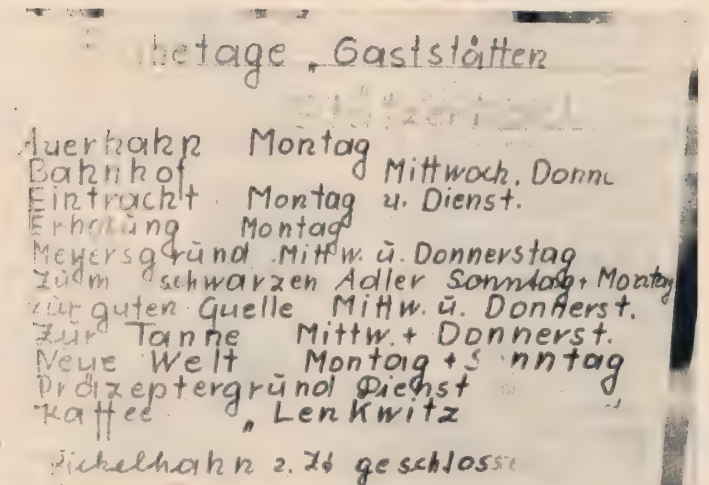 Ruhetage „Gaststätten
Auerhahn Montag
Bahnhof Mittwoch, Donne
Eintracht Montag u. Dienst.
Erholung Montag
Meyersgrund Mittw. ü. Donnerstag
Zum schwarzen Adler Sonntag + Montag
zur guten Quelle Mittw. ü. Donnerst.
Zur Tanne Mittw. + Donnerst.
Neue Welt Montag + Sonntag
Präzeptergründ Dienst
Kaffee „Lenkwitz
Kickelhahn z. Zt geschlosse